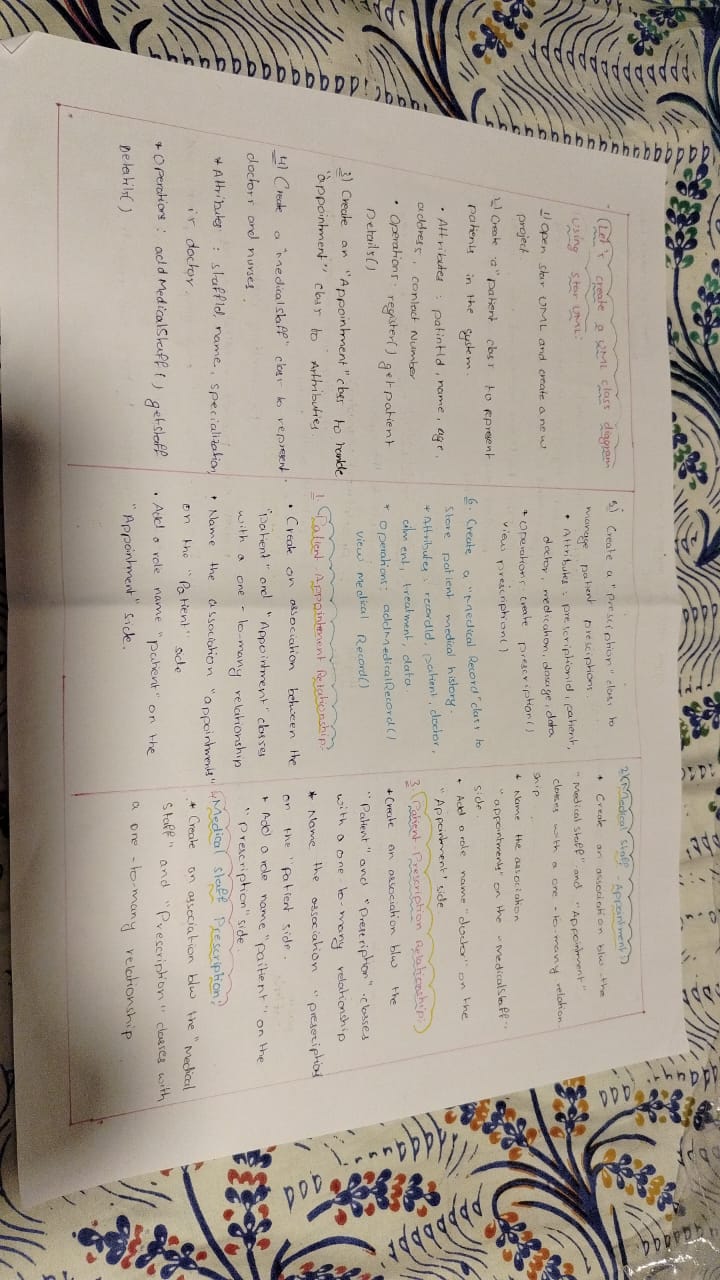 Let's create a UML class diagram
using star UML:
1) Open star UML and create a new
project.
2) Create "a" patient class to represent
patients in the system.
• Attributes : patintId, name, age,
address, contact Number
• Operations: register() get patient
Details()
3) Create an "Appointment" class to handle
"appointment" class to Atttributies.
4) Create a "medicalstaff" class to represent
doctors and nurses.
* Attributes : staffId, name, specialization,
is doctor.
* Operations : add MedicalStaff() getstaff
Details()
5) Create a "prescription" class to
manage patient presciptions.
• Attributes : prescriptionid, patient,
doctor, medication, dosage, data
* Operations: create prescription()
view prescription()
6. Create a "Medical Record" class to
store patient medical history.
* Attributes : recordId, patient, doctor,
ailment, treatment, data.
* Operations: addMedicalRecord()
view Medical Record()
1. Patient-Appointement Relationship:
• Create an association between the
"patient" and "Appointment" classes
with a one-to-many relationship
• Name the association "appointments"
on the "Patient" side
• Add a role name "patient" on the
"Appointment" side.
2. (Medical Staff-Appointment:)
* Create an association b/w the
"Medical staff" and "Appointment"
classes with a one-to-many relation
ship
* Name the association
"appointments" on the "MedicalStaff"
side.
* Add a role name "doctor" on the
"Appointment" side.
3. Patient-Prescription Relationship:
* Create an association b/w the
"Patient" and "Prescription" classes
with a one-to-many relationship
* Name the association "prescription
on the "patient side.
* Add a role name "paitient" on the
"Prescription" side.
4. Medical staff Prescription:
* Create an association b/w the "Medical
staff" and "Prescription" classes with
a one-to-many relationship